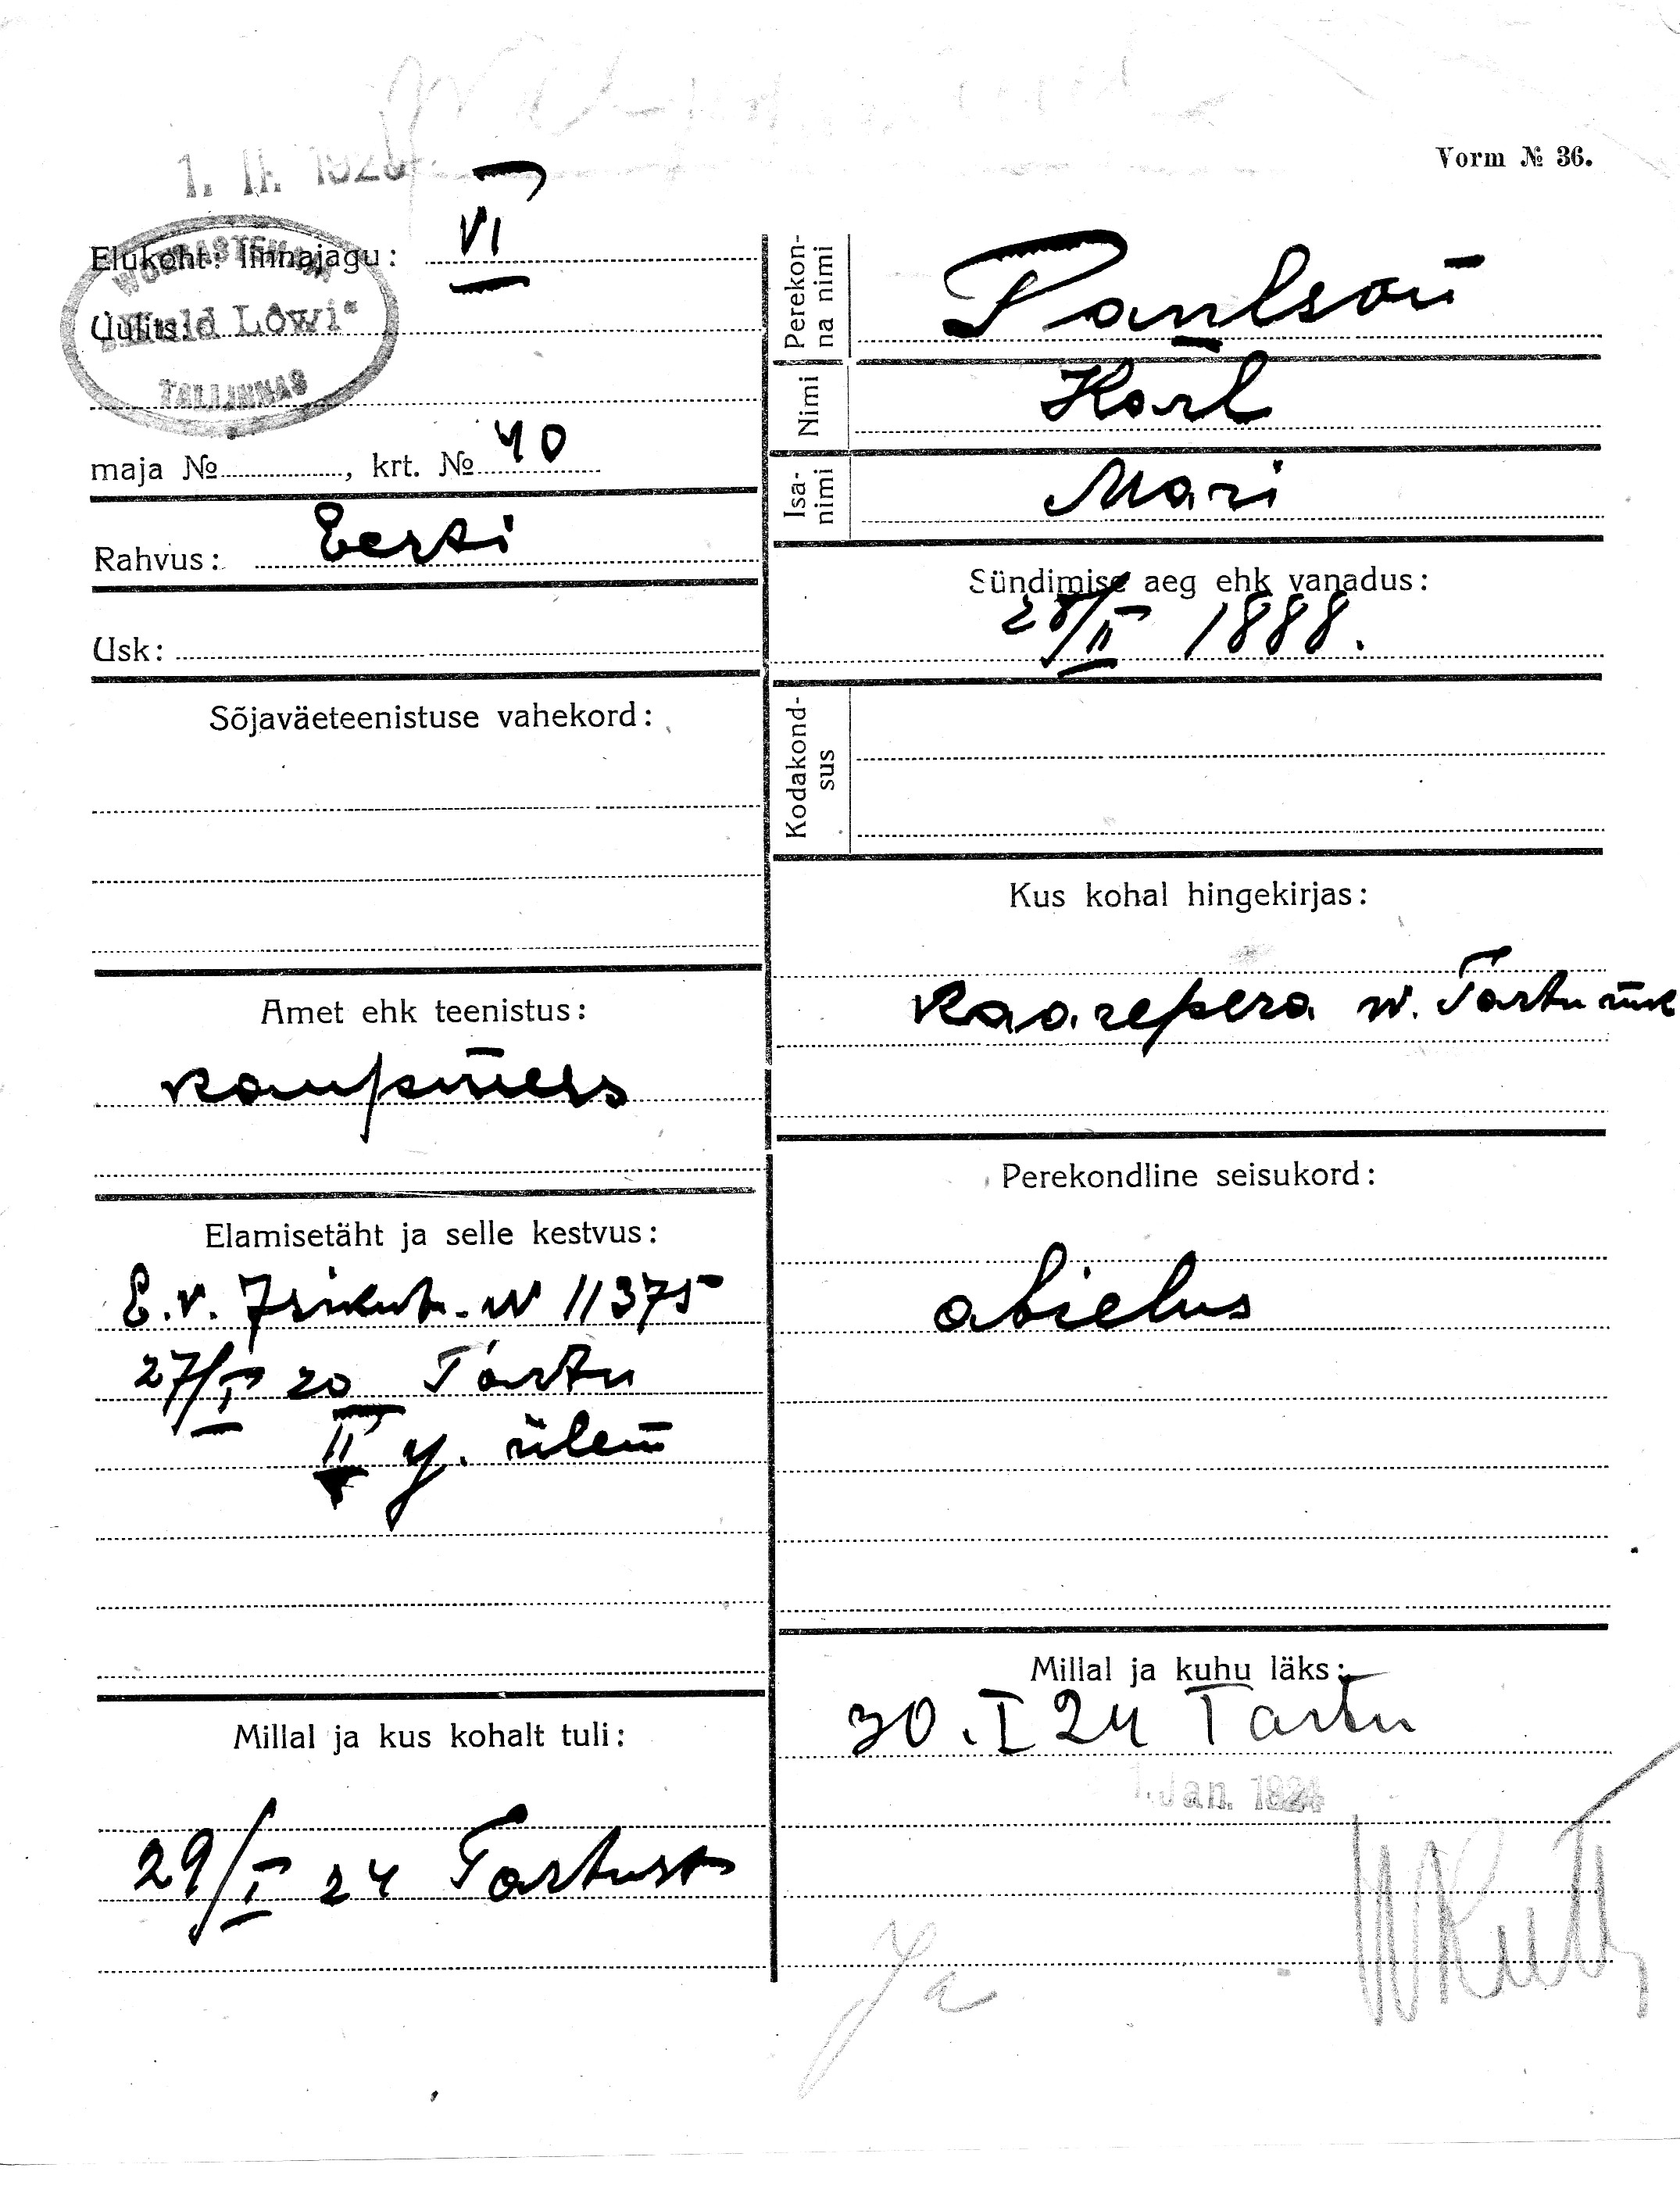 Vorm № 36.
1. II. 192
Elukoht: linnajagu: VI
WÕÕRASTEMAJA
Uulits:
Kuld Lõwi"
TALLINNAS
maja № , krt. № 40
Rahvus: Eesti
Usk:
Sõjaväeteenistuse vahekord:
Amet ehk teenistus:
kaupmees
Elamisetäht ja selle kestvus:
E.v. Isikut. N 11375
27/I 20 Tartu
II j. ülem
Millal ja kus kohalt tuli:
29/I 24 Tartust
Perekon-
na nimi
Paulson
Nimi
Karl
Isa-
nimi
Mari
Sündimise aeg ehk vanadus:
28/II 1888.
Kodakond-
sus
Kus kohal hingekirjas:
Kaarepera w. Tartu mk
Perekondline seisukord:
abielus
Millal ja kuhu läks:
30. I 24 Tartu
1. Jan. 1924
Ja